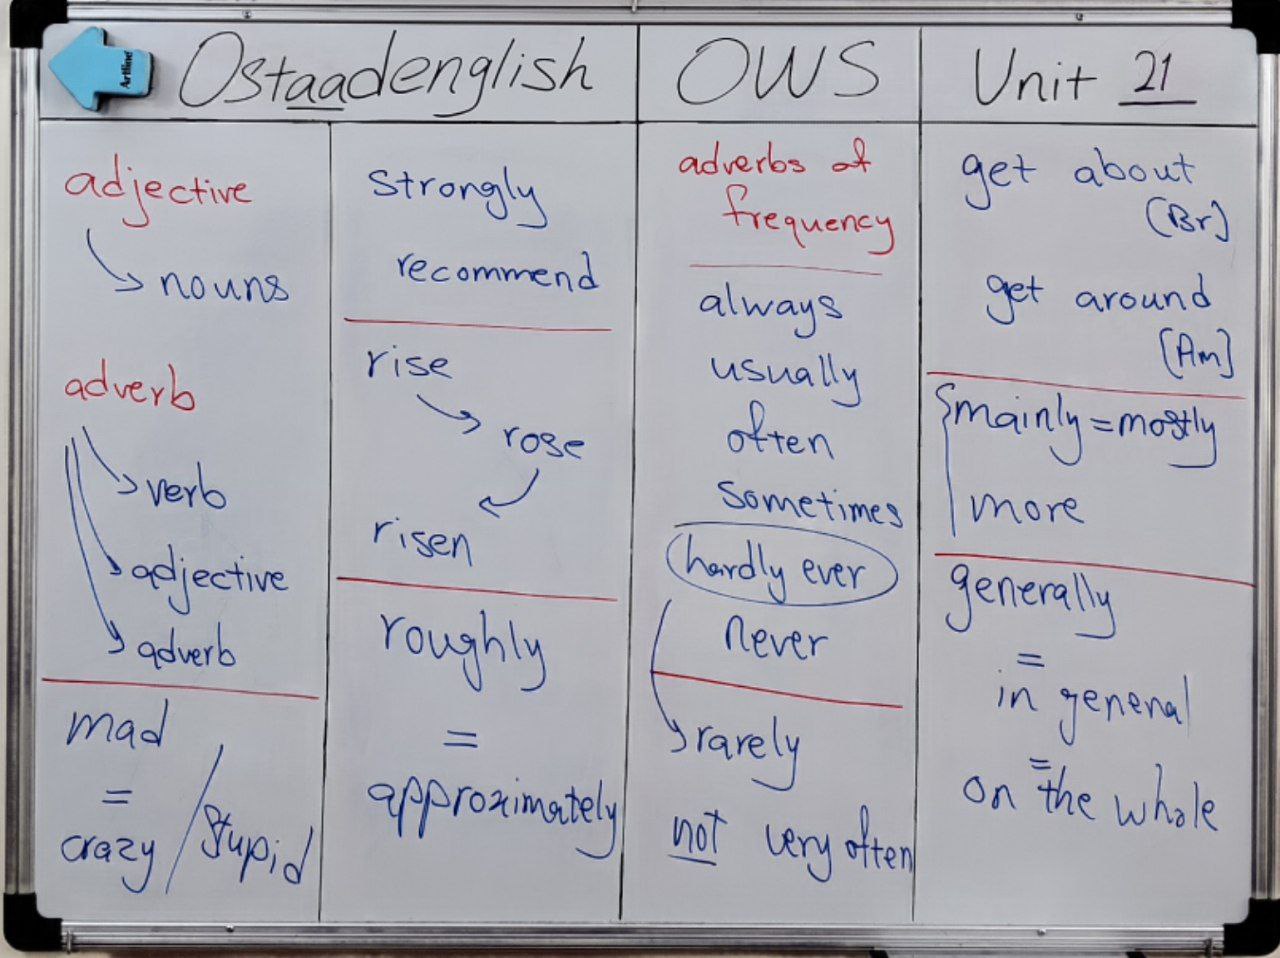 Ostaadenglish
OWS
Unit 21
Artline
adjective
nouns
adverb
verb
adjective
adverb
mad
=
crazy / stupid
strongly
recommend
rise
rose
risen
roughly
=
approximately
adverbs of
frequency
always
usually
often
sometimes
hardly ever
never
rarely
not very often
get about
(Br]
get around
[Am]
mainly = mostly
more
generally
=
in general
=
on the whole